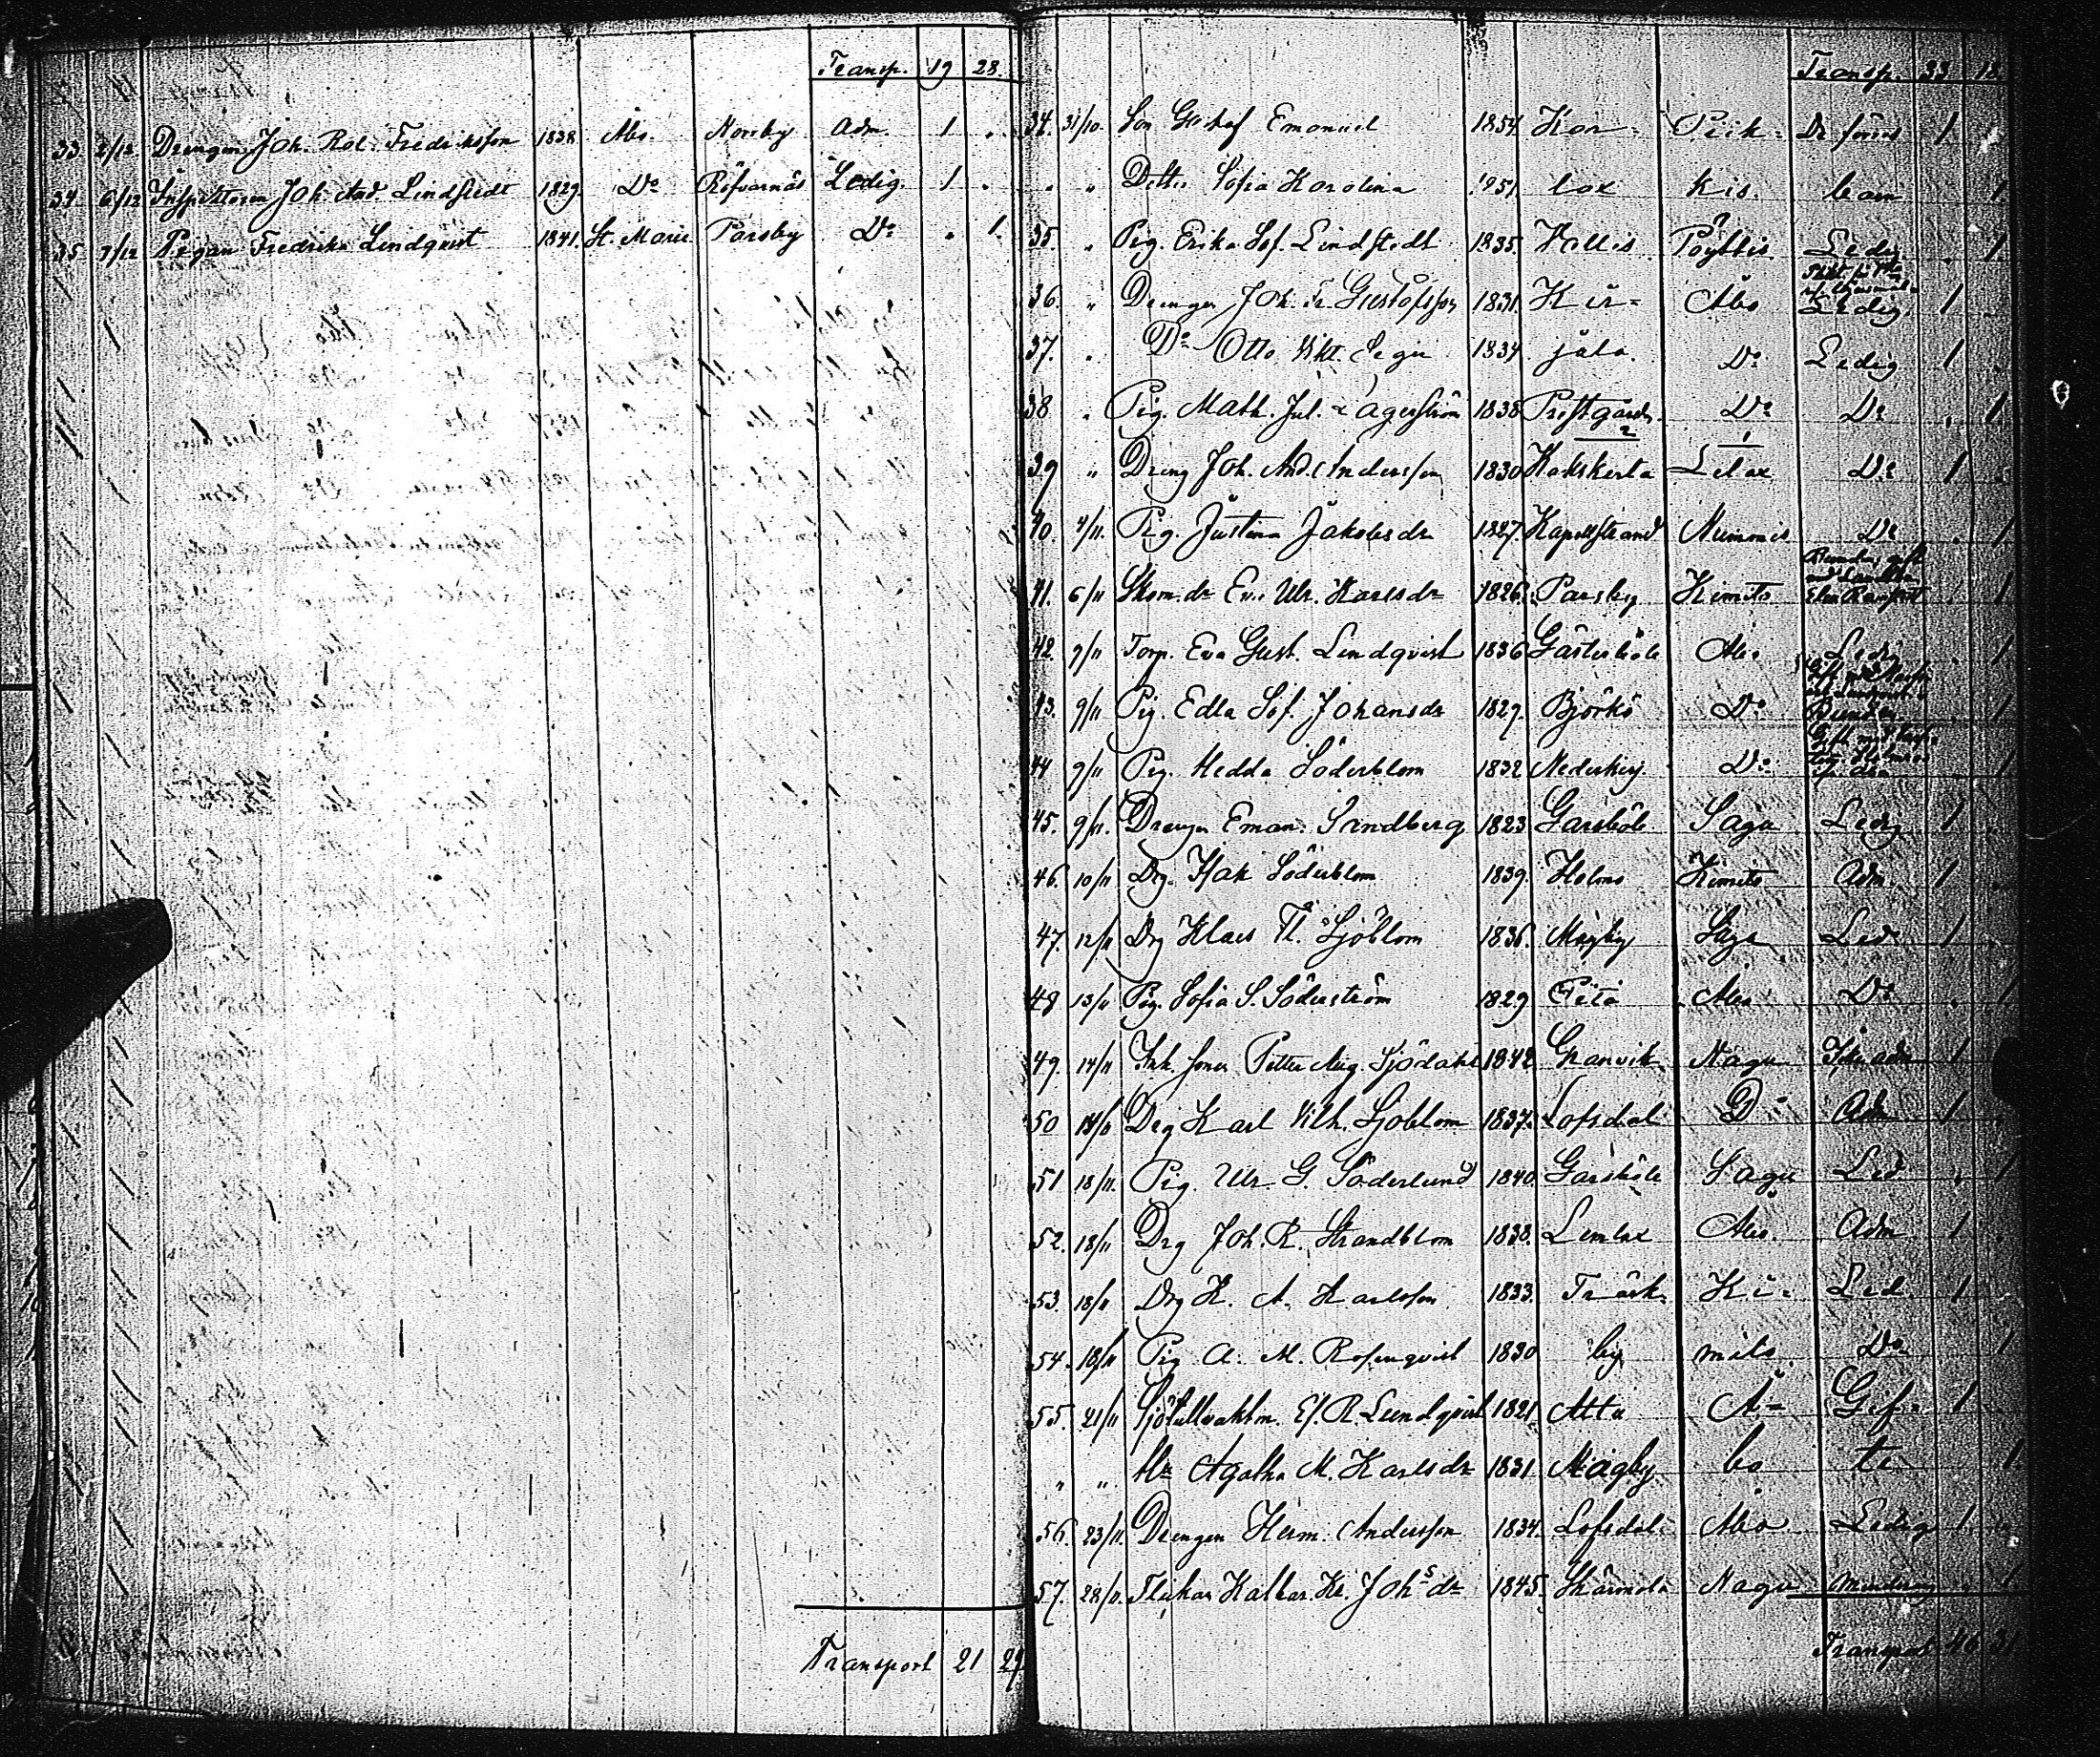 Transp. 19 28.
33 2/12 Drengen Joh. Rob. Fredriksson 1838 Åbo Norrby Adm. 1 .
34 6/12 Inspektoren Joh. And. Lindstedt 1829. Do Röfvarnäs Ledig. 1 .
35 7/12 Pigan Fredrika Lindqvist 1841. St. Marie Parsby Do . 1.
Transport 21 29
Transp. 33 18
34. 31/10. Son Gustaf Emanuel 1854 Kor- Piik- De förres 1.
. " Dotter Sofia Karolina 1851 lax kis. barn 1
35. " Pig. Erika Sof. Lindstedt 1835. Kallis Pöyttis Ledig . 1.
36. " Drengen Joh. Fr. Gustafsson 1831. Kir- Åbo Ledig. 1 .
37. . Do Otto Vikt. Seger 1834 jala. Do Ledig 1 .
38 . Pig. Math. Jul. Lagerström 1838 Prestgård. Do Do . 1.
39 " Dreng Joh. And. Andersson 1830 Kakskerta Lelax Do 1 .
40. 4/11. Pig. Justina Jakobsdr 1827. Kapellstrand Nummis Do . 1
41. 6/11 Skom. dr Eva Ulr. Karlsdr 1826. Parsby Kimito . 1
42. 9/11 Torp. Eva Gust. Lindqvist 1836 Gästerböle Åbo Ledig . 1
43. 9/11 Pig. Edla Sof. Johansdr 1829. Björkö Do . 1
44 9/11 Pig. Hedda Söderblom 1832 Nederkirj. Do . 1.
45. 9/11. Drengen Eman. Sandberg 1823 Garsböle Sagu Ledig 1 .
46. 10/11 Drg. Isak Söderblom 1839. Holmo Kimito Adm. 1 .
47. 12/11 Drg Klaes Fl. Sjöblom 1836. Mågby Sagu Led. 1 .
48 13/11 Pig. Sofia S. Söderström 1829 Åbo Do . 1
49. 14/11 Inh. sonen Petter Aug. Sjödahl 1842 Granvik Nagu 1
50 14/11 Drg Karl Vilh. Sjöblom 1837. Lofsdal Do Adm 1 .
51 18/11. Pig. Ulr. G. Söderlund 1840. Garsböle Sagu Led . 1
52. 18/11 Drg Joh. R. Strandblom 1838. Lemlax Åbo Adm 1 .
53. 18/11 Drg K. A. Karlsson 1833. Träsk- Ki- Led. 1
54. 18/11 Pig A. M. Rosenqvist 1830 by mito Do 1
55. 21/11 Sjötullvaktm. Ef. R. Lundqvist 1821 Attu Å- Gif- 1
" " Agatha M. Karlsdr 1831 Mågby bo ta 1.
56. 23/11. Drengen Herm. Andersson 1834. Lofsdal Åbo Ledig 1.
57. 28/11. Flickan Kathar. Kr. Johsdr 1845. Skärmola Nagu Minderårig . 1
Transport 46 31